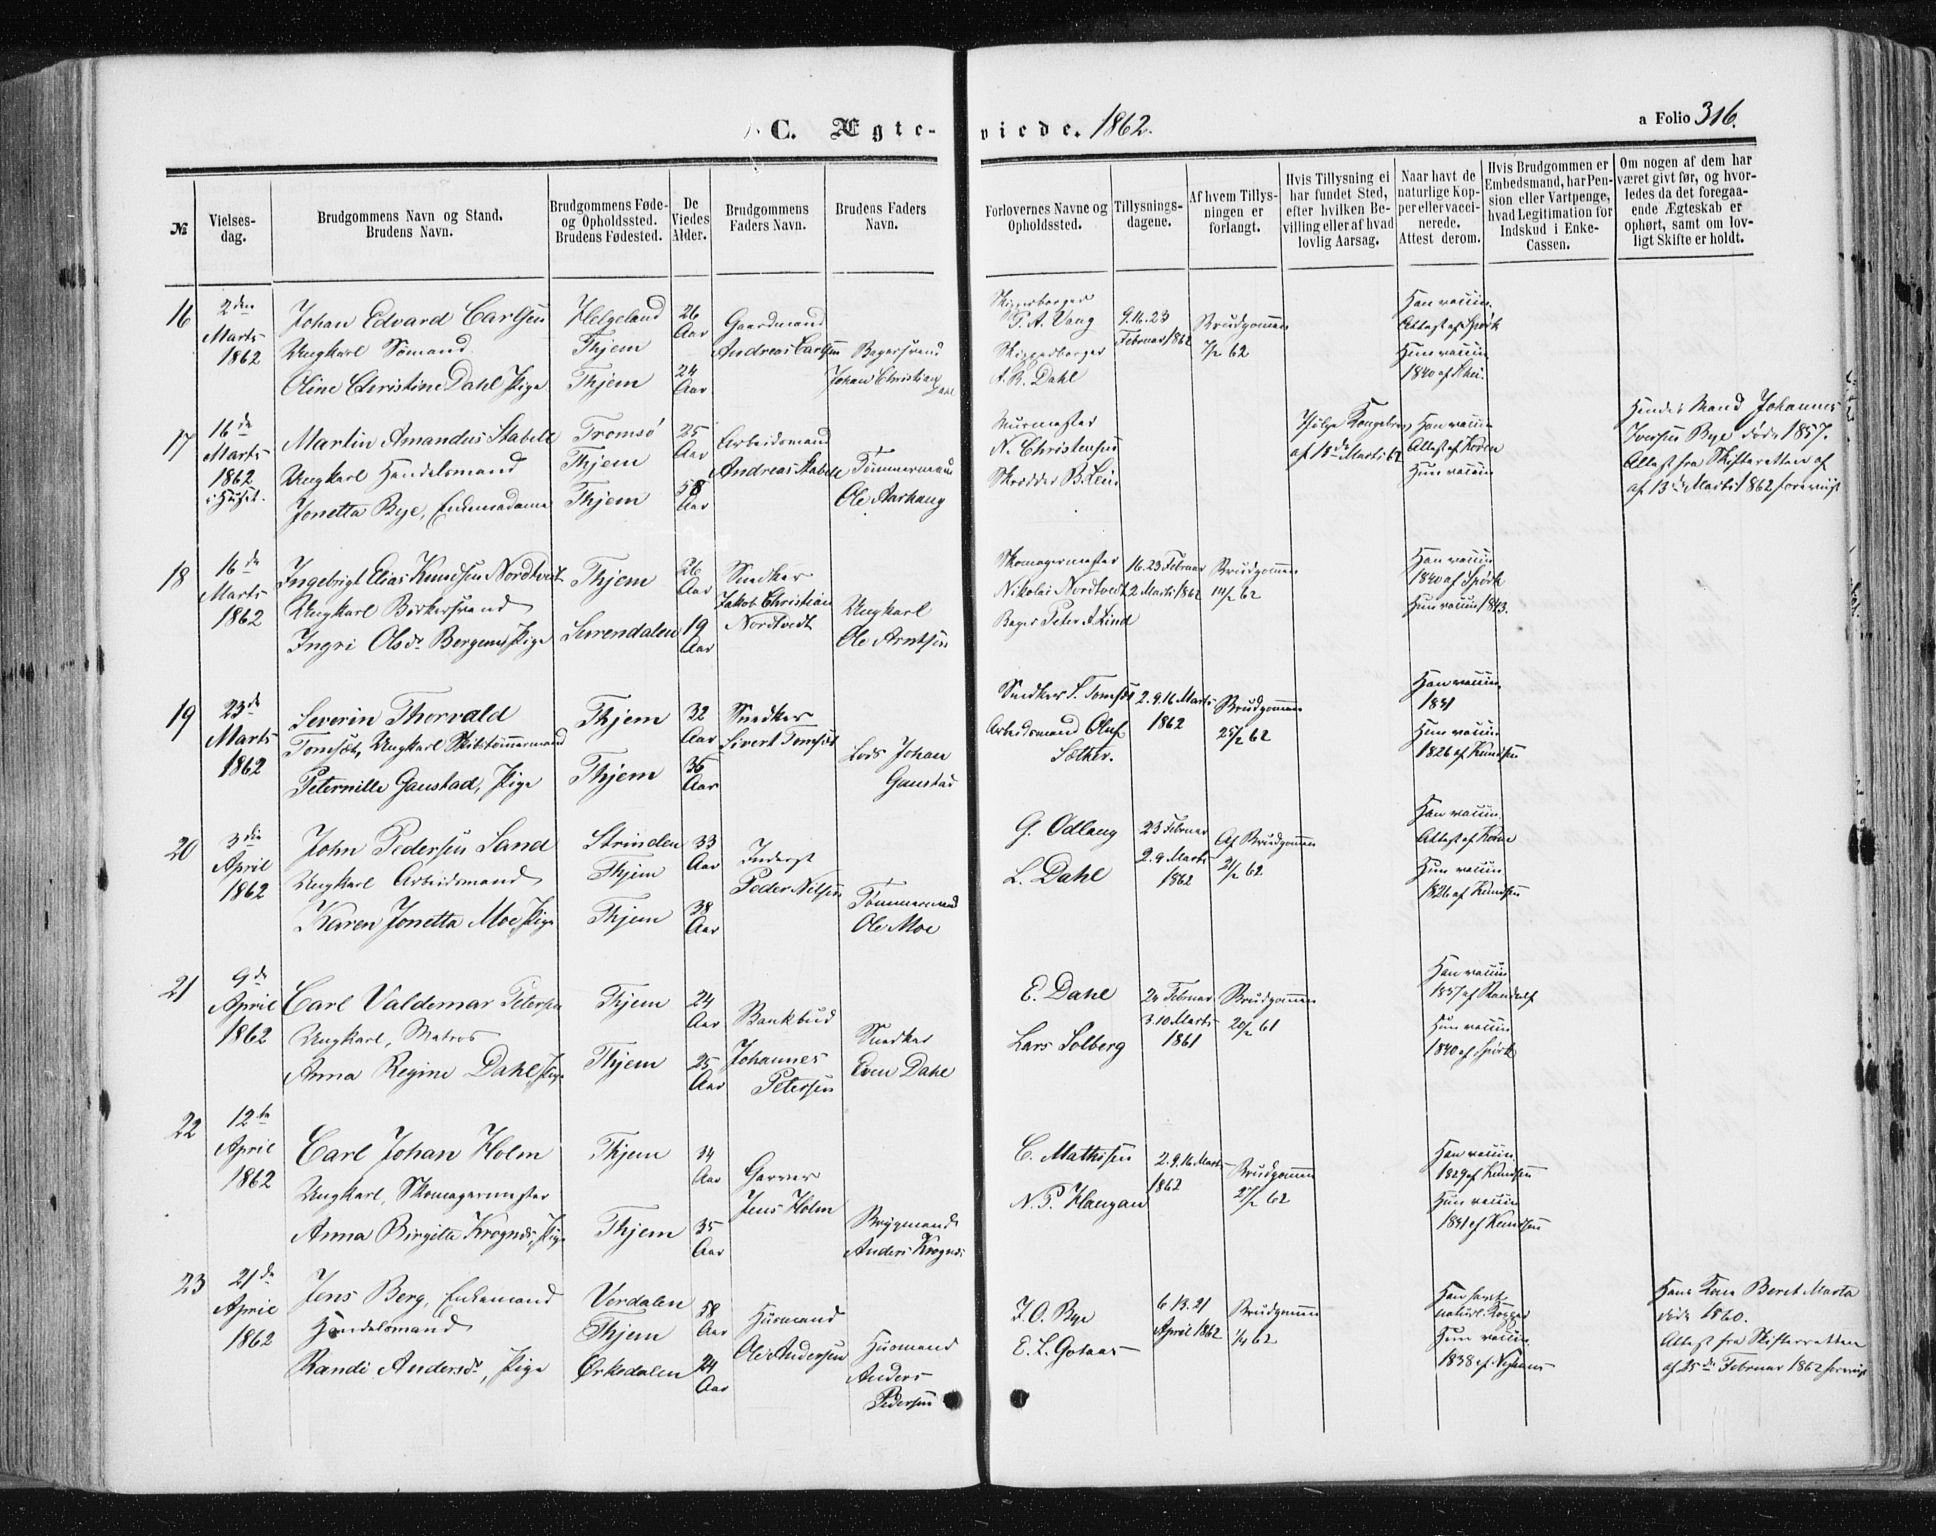 C. Ægte-viede. 1862.
a Folio 316.
№
Vielses-
dag.
Brudgommens Navn og Stand.
Brudens Navn.
Brudgommens Føde-
og Opholdssted.
Brudens Fødested.
De
Viedes
Alder.
Brudgommens
Faders Navn.
Brudens Faders
Navn.
Forlovernes Navne og
Opholdssted.
Tillysnings-
dagene.
Af hvem Tillys-
ningen er
forlangt.
Hvis Tillysning ei
har fundet Sted,
efter hvilken Be-
villing eller af hvad
lovlig Aarsag.
Naar havt de
naturlige Kop-
per eller vacci-
nerede.
Attest derom.
Hvis Brudgommen er
Embedsmand, har Pen-
sion eller Vartpenge,
hvad Legitimation for
Indskud i Enke-
Cassen.
Om nogen af dem har
været givt før, og hvor-
ledes da det foregaa-
ende Ægteskab er
ophørt, samt om lov-
ligt Skifte er holdt.
16
2den
Marts
1862
Johan Edvard Carlsen
Ungkarl Sömand
Oline Christine Dahl Pige
Helgeland
Thjem
Thjem
26
Aar
24
Aar
Gaardmand
Andreas Carlsen
Bagersvend
Johan Christian
Dahl
Skipperborger
P. A. Vang
Skipperborger
A. R. Dahl
9.16.23
Februar 1862
Brudgommen
7/2 62
Han vaccin.
Attest af Spörk
Hun vaccin
1840 af Khei.
17
16de
Marts
1862
i Huset.
Martin Amandus Stabell
Ungkarl Handelsmand
Jonetta Bye, Enkemadame
Tromsö
Thjem
Thjem
25
Aar
58
Aar
Arbeidsmand
Andreas Stabell
Tömmermand
Ole Aarhaug
Murmester
N. Christensen
Skrædder B. Lein
Ifölge Kongebrev
af 13de Marts 62
Han vaccin
Attest af Koren
Hun vaccin
Hendes Mand Johannes
Iversen Bye döde 1857.
Attest fra Skifteretten af
af 13de Marts 1862 foreviist
18
16de
Marts
1862
Ingebrigt Elias Knudsen Nordtvedt
Ungkarl Bödkersvend
Ingri Olsdr Bergem, Pige
Thjem
Surendalen
26
Aar
19
Aar
Snedker
Jakob Christian
Nordtvedt
Ungkarl
Ole Arntsen
Skomagermester
Nikolai Nordtvedt
Bager Peter A Lind
16.23 Februar
2 Marts 1862
Brudgommen
14/2 62
Han vaccin
1840 af Spörk
Hun vaccin 1843.
19
23de
Marts
1862
Severin Thorvald
Tomset, Ungkarl Skibstömmermand
Peternille Ganstad, Pige
Thjem
Thjem
32
Aar
36
Aar
Snedker
Sivert Tomset
Lods Johan
Ganstad
Snedker S. Tomset
Arbeidsmand Oluf
Sother.
2.9.16 Marts
1862
Brudgommen
25/2 62
Han vaccin
1831
Hun vaccin
1826 af Knudsen
20
3die
April
1862
John Pedersen Sand
Ungkarl Arbeidsmand
Karen Jonetta Moe, Pige
Strinden
Thjem
Thjem
33
Aar
38
Aar
Inderst
Peder Nilsen
Tömmermand
Ole Moe
G. Odlaug
L. Dahl
23 Februar
2.9 Marts
1862
Af Brudgommen
21/2 62
Han vaccin.
Attest af Koren
Hun vaccin
1826 af Knudsen
21
9de
April
1862
Carl Valdemar Petersen
Ungkarl, Matros
Anna Regine Dahl, Pige
Thjem
Thjem
24
Aar
25
Aar
Bankbud
Johannes
Petersen
Snedker
Even Dahl
E. Dahl
Lars Solberg
24 Februar
3.10 Marts
1861
Brudgommen
20/2 61
Han vaccin
1837 af Randulf
Hun vaccin
1840 af Spörk
22
12te
April
1862
Carl Johan Holm
Ungkarl, Skomagermester
Anna Birgitta Krognes, Pige
Thjem
Thjem
34
Aar
35
Aar
Garver
Jens Holm
Brygmand
Anders Krognes
C. Mathisen
N. P. Haugan
2.9.16 Marts
1862
Brudgommen
27/2 62
Han vaccin.
1829 af Knudsen
Hun vaccin
1831 af Knudsen
23
21de
April
1862
Jens Berg, Enkemand
Handelsmand
Randi Andersdr, Pige
Verdalen
Thjem
Örkedalen
58
Aar
24
Aar
Husmand
Ole Andersen
Husmand
Anders
Pedersen
J. O. Bye
E. L. Gotaas
6 13. 21
April 1862
Brudgommen
1/4 62
Han havt
naturl. Kopper
Hun vaccin.
1838 af
Hans Kone Beret Marta
döde 1860.
Attest fra Skifteretten
af 25de Februar 1862 foreviist